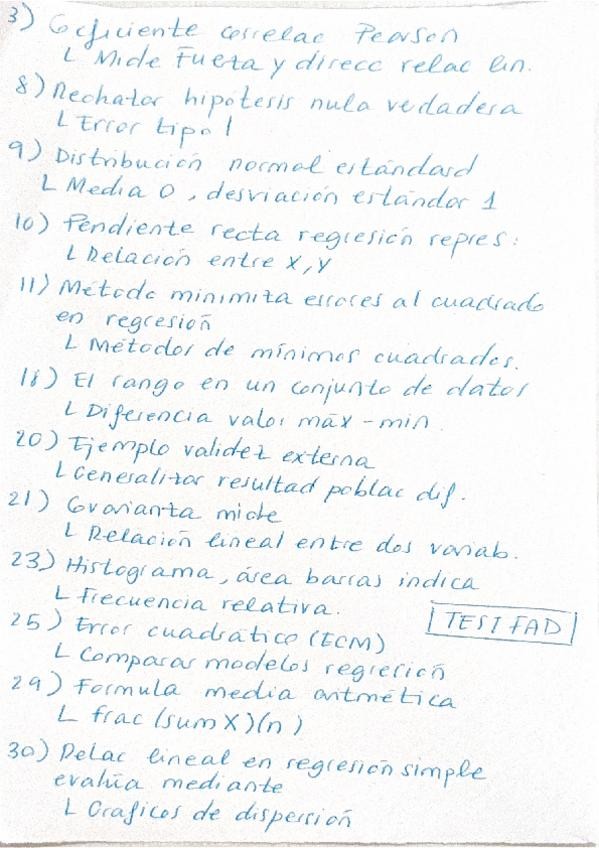 3) Coeficiente correlac Pearson
L Mide Fuerza y direcc relac lin.
8) Rechazar hipótesis nula verdadera
L Error tipo I
9) Distribución normal estándard
L Media 0, desviación estándar 1
10) Pendiente recta regresión repres:
L Relación entre X, Y
11) Método minimiza errores al cuadrado
en regresión
L Métodos de mínimos cuadrados.
18) El rango en un conjunto de datos
L Diferencia valor máx - min.
20) Ejemplo validez externa
L Generalizar resultad poblac dif.
21) Covarianza mide
L Relación lineal entre dos variab.
23) Histograma, área barras indica
L Frecuencia relativa.
25) Error cuadrático (ECM)
TEST FAD
L Comparar modelos regresión
29) Formula media aritmética
L frac (sum X)(n)
30) Relac lineal en regresión simple
evalúa mediante
L Graficos de dispersión